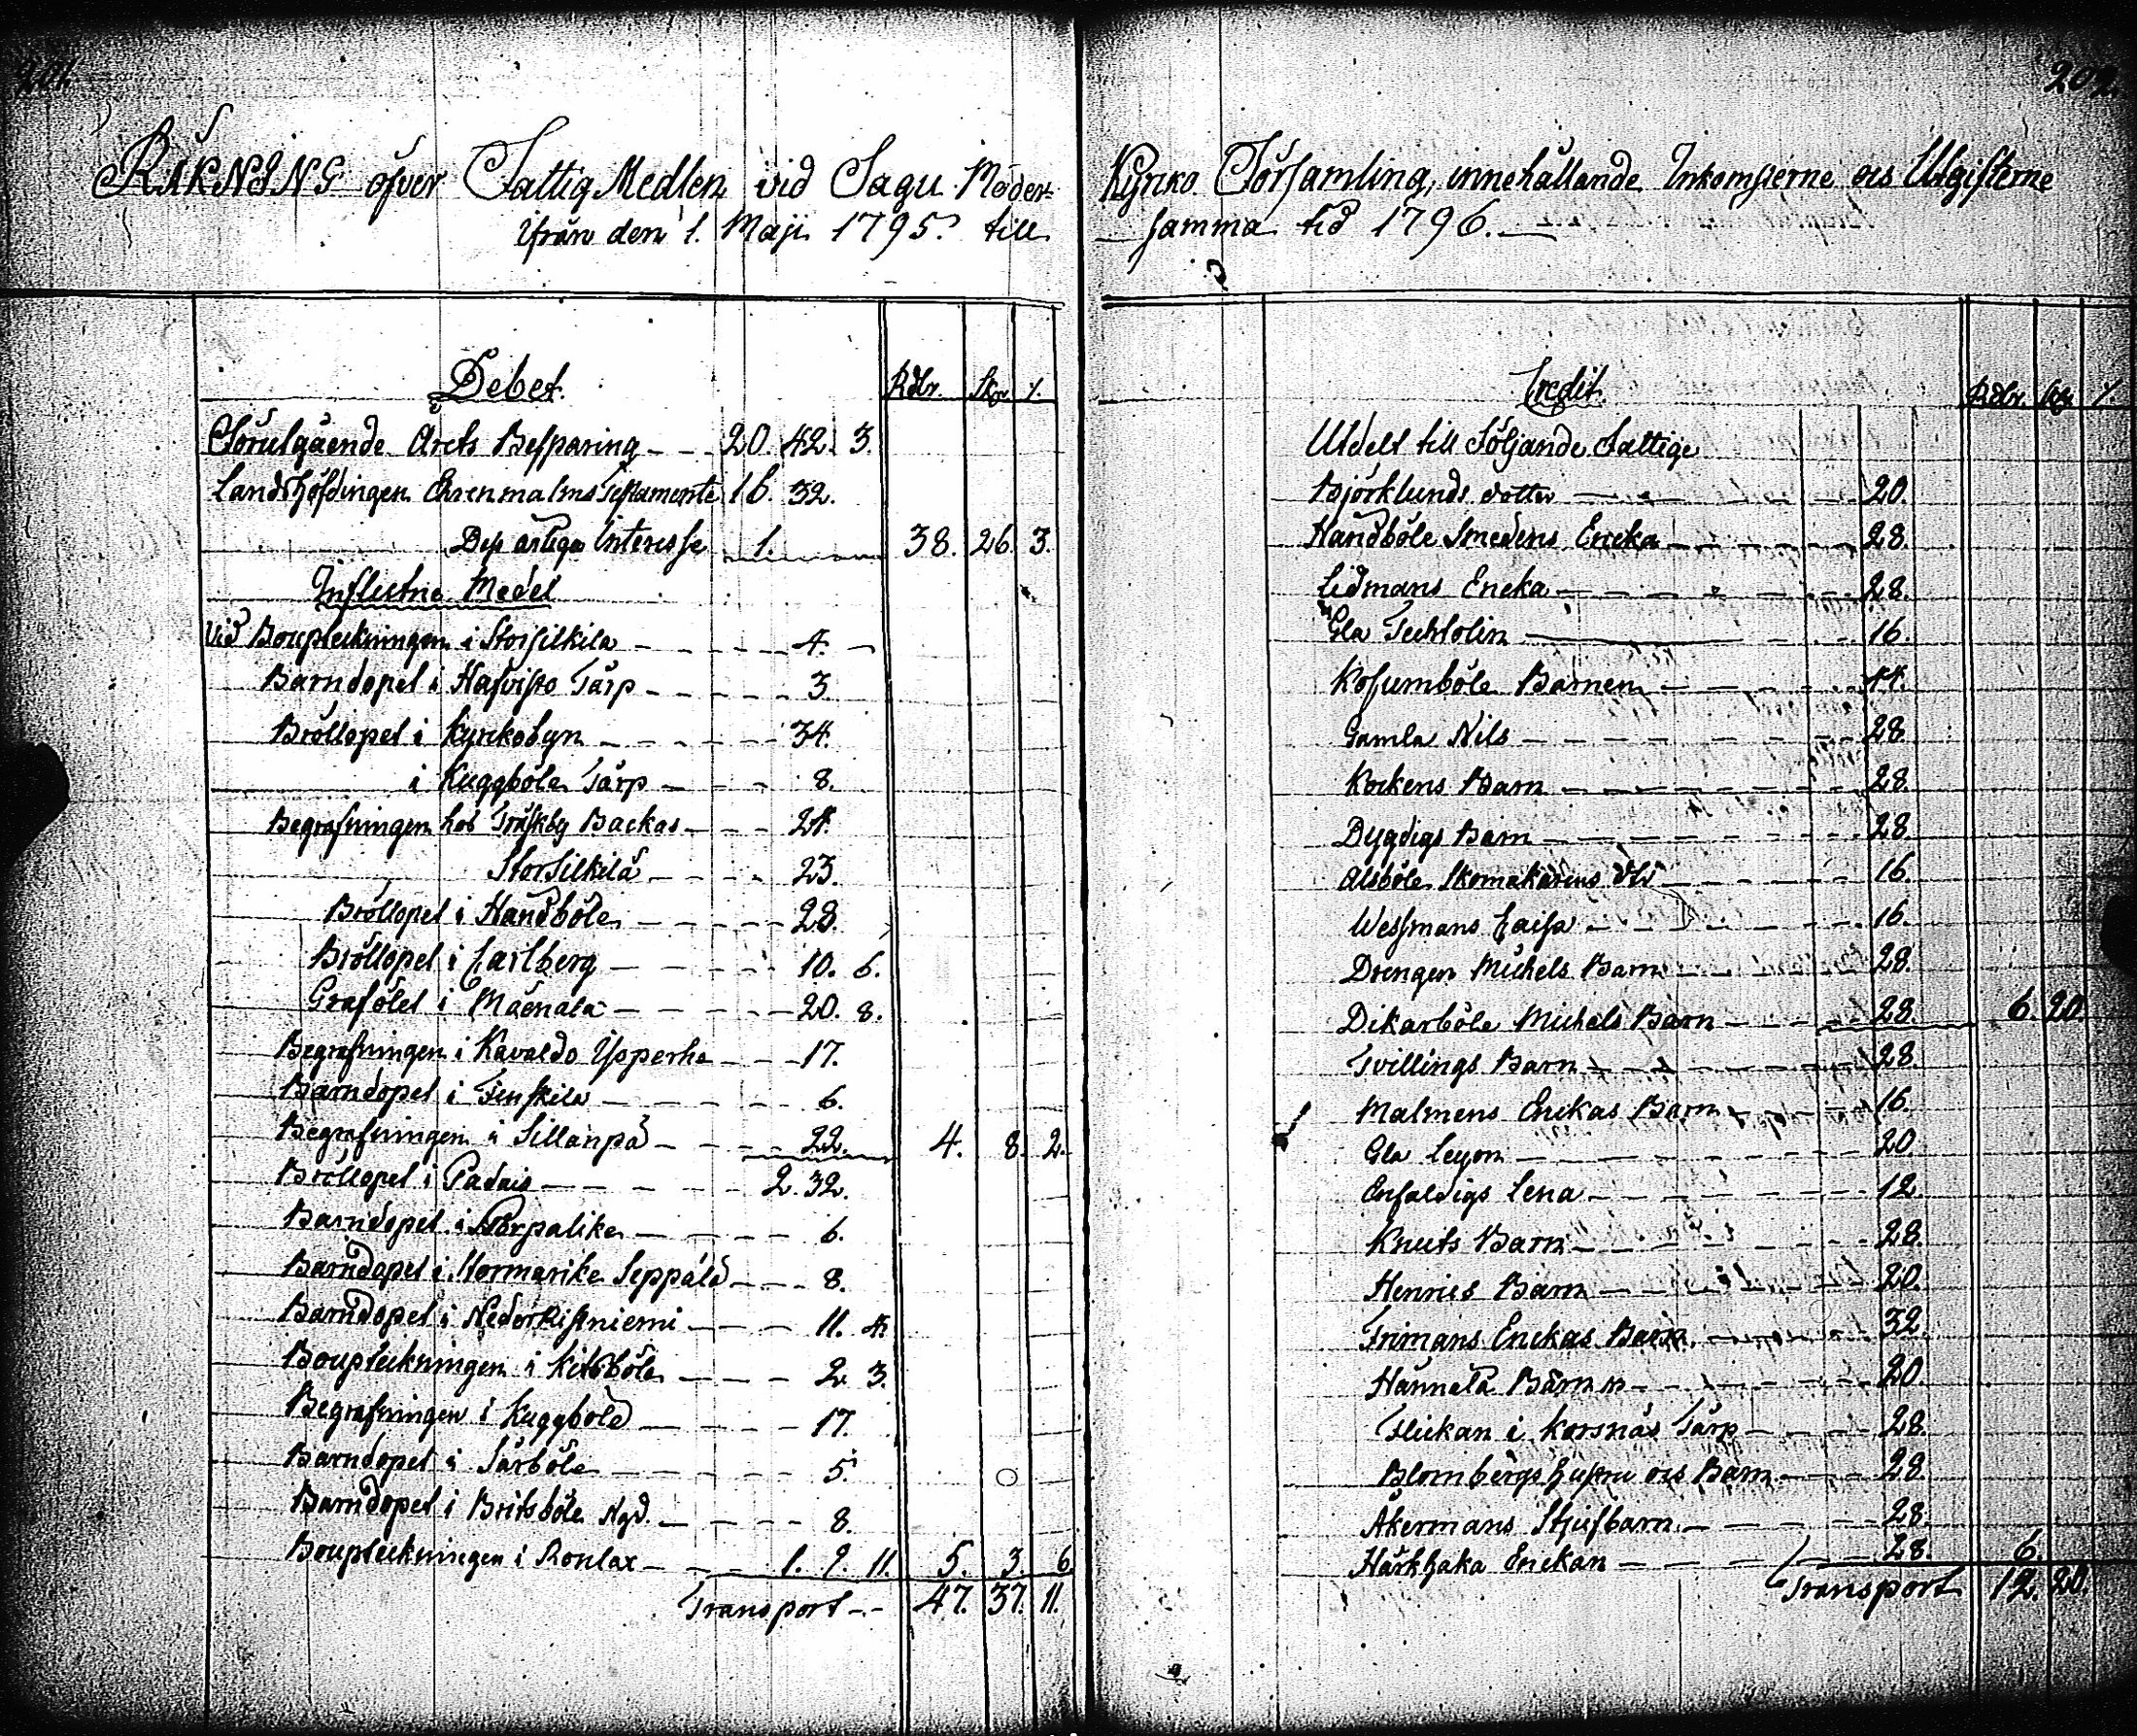 201.
RÄKNING öfver Fattig Medlen vid Sagu Moder=
ifrån den 1. Maji 1795. till
Debet. Rdlr. Sk.
Förutgående Årets Besparing 20. 42. 3.
Landshöfdingen Ehrenmalms Testamente 16. 32.
Dess årlige Interesse 1. 38. 26. 3.
Influtne Medel
Vid Bouptekningen i Storsilkila 4.
Barndopet i Hafvisto Tårp 3.
Bröllopet i Kyrkobyn 34.
i Kuggböle Tårp 8.
Begrafningen hos Träskby Backas 24.
Storsilkilä 23.
Bröllopet i Handböle 28.
Bröllopet i Carlberg 10. 6.
Grafölet i Mäenala 20. 8.
Begrafningen i Kavaldo Ypperhe 17.
Barndopet i Finskila 6.
Begrafningen i Sillanpä 22. 4. 8. 2.
Bröllopet i Padais 2. 32.
Barndopet i 6.
Barndopet i Mormarike Seppälä 8.
Barndopet i 11. 4.
Bouptekningen i Kitoböle 2. 3.
Begrafningen i Kuggböle 17.
Barndopet i Särböle 5.
Barndopet i Britsböle Ngd. 8.
Bouptekningen i Ronlax 1. 9. 11. 5. 3. 6.
Transport 47. 37. 11.
202.
Kyrko Församling, innehållande Inkomsterne och Utgifterne
samma tid 1796.
Credit. Rdlr. Sk.
Utdelt till Följande Fattige
Björklunds dotter 20.
Handböle Smedens Encka 28.
Lidmans Encka 28.
Gla 16.
Kosumböle Barnen 44.
Gamla Nils 28.
Kockens Barn 28.
Dygdigs Barn 28.
Alsböle Skomakarens 16.
Wessmans Caisa 16.
Drengen Michels Barn 28.
Dikarböle Michels Barn 28. 6. 20.
Tvillings Barn 28.
Malmens Enckas Barn 16.
Gla Leyon 20.
Enfaldigs Lena 12.
Knuts Barn 28.
Henrics Barn 20.
Frimans Enckas Barn 32.
Hännälä Barnen 20.
Flickan i Korsnäs Tårp 28.
Blombergs hustru och Barn 28.
Åkermans Stjufbarn 28.
Härkhaka Enckan 28. 6.
Transport 12. 20.